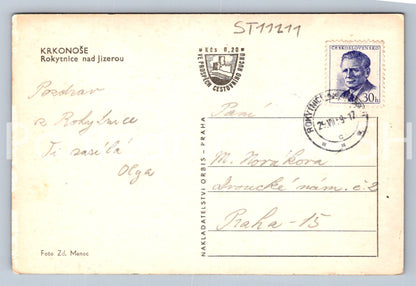 ST11211
KRKONOŠE
Rokytnice nad Jizerou
Kčs 0,20
VE PROSPĚCH CESTOVNÍHO RUCHU
ČESKOSLOVENSKO
30h
Pozdrav
z Rokytnice
Ti zasílá
Olga
Paní
M. Nováková
nám. č. 2
Praha - 15
NAKLADATELSTVÍ ORBIS - PRAHA
Foto Zd. Menec